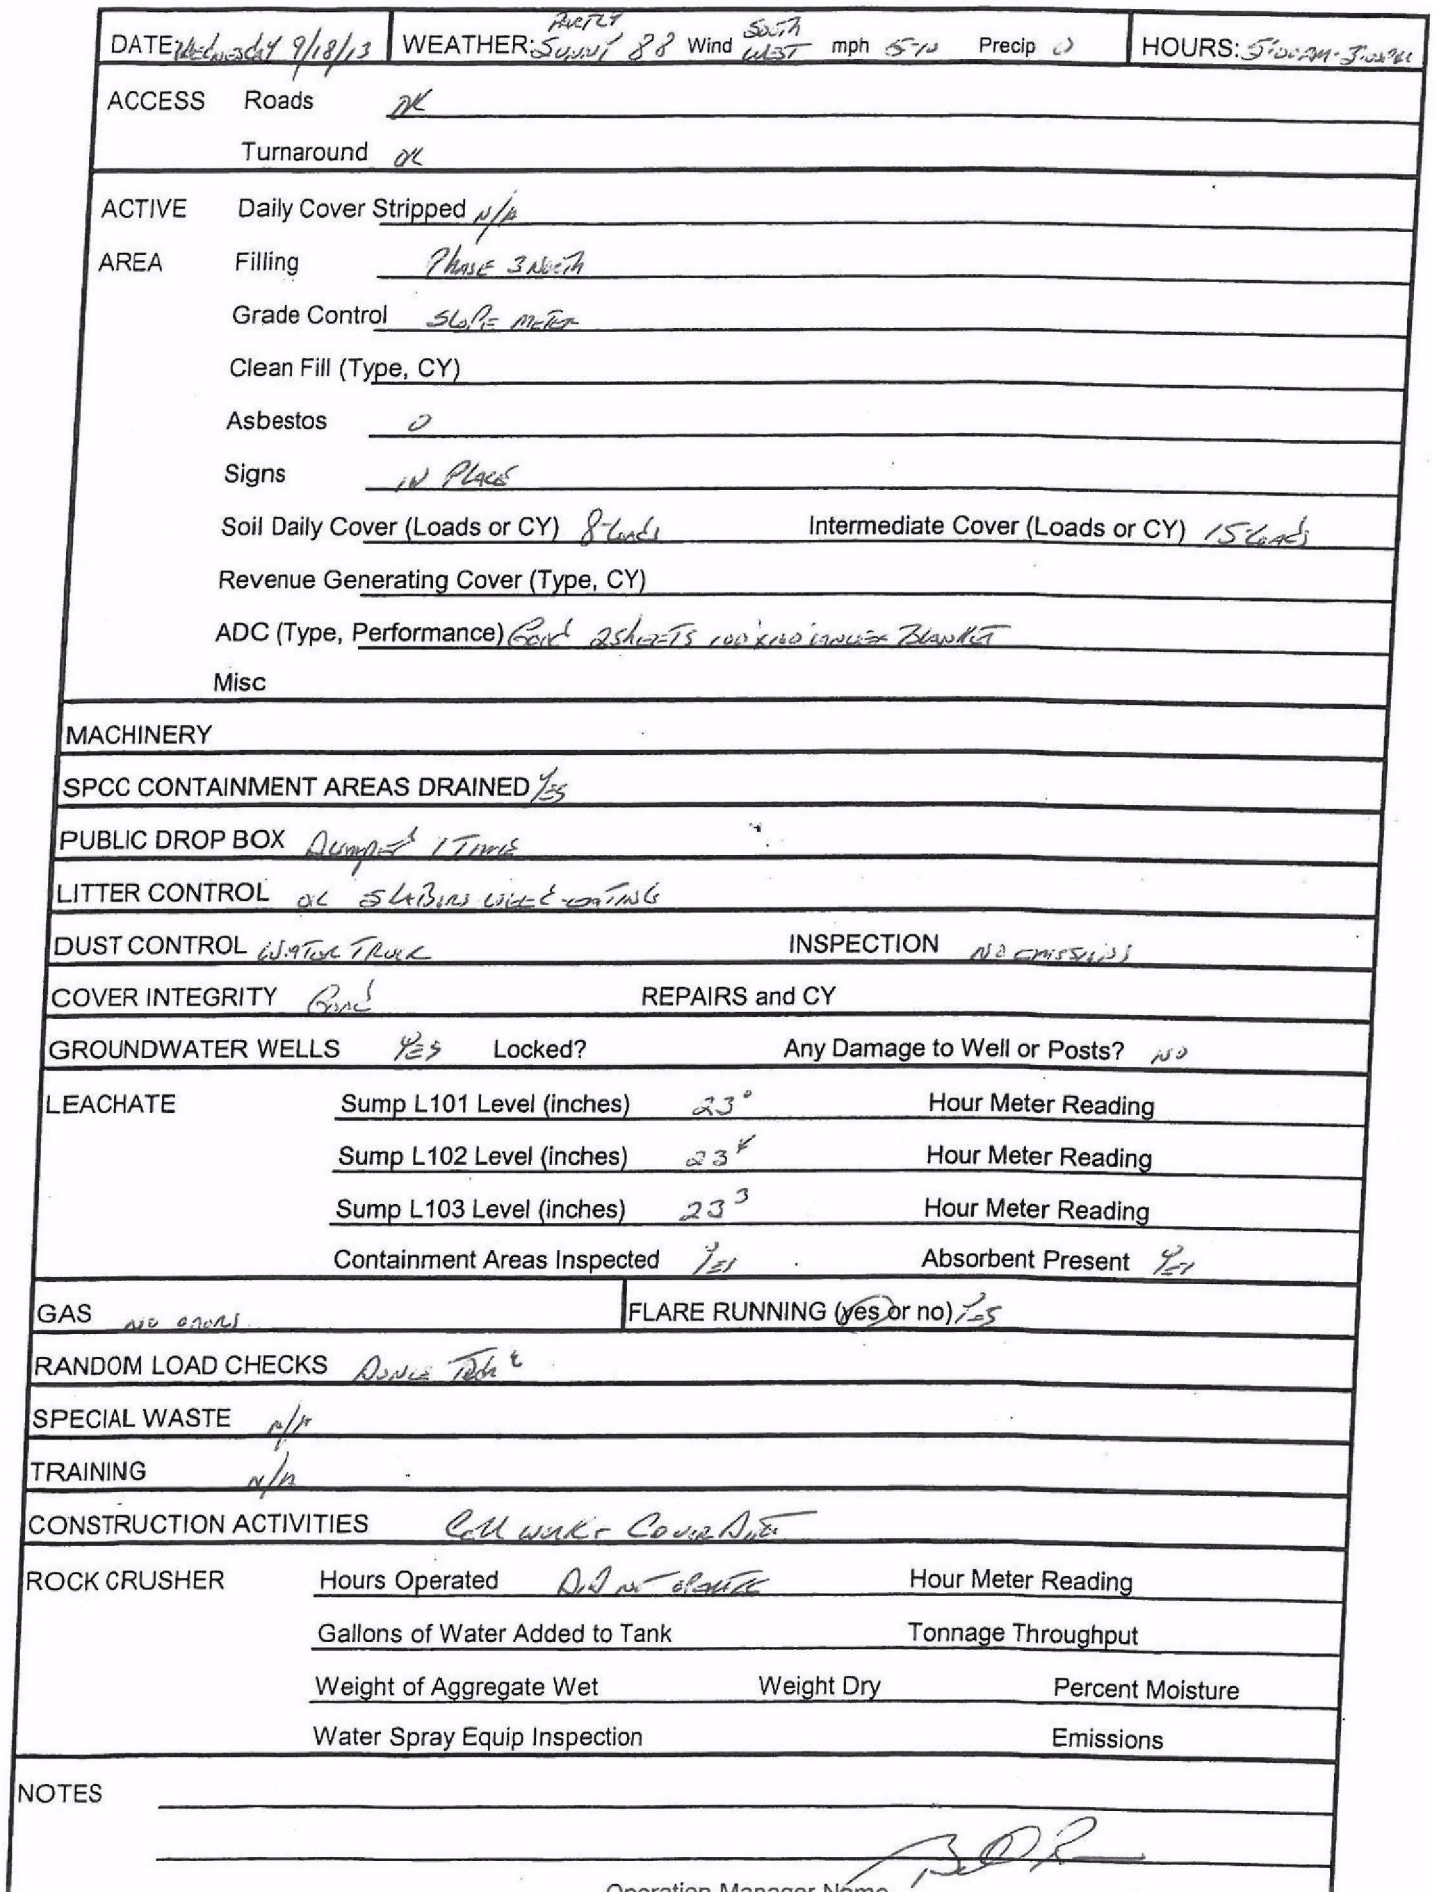 DATE: Wednesday 9/18/13 WEATHER: Partly Sunny 88 Wind South West mph 5-10 Precip 0 HOURS: 5:00AM-3:00PM
ACCESS Roads OK
Turnaround OK
ACTIVE Daily Cover Stripped N/A
AREA Filling Phase 3 North
Grade Control Slope Meter
Clean Fill (Type, CY)
Asbestos 0
Signs IN Place
Soil Daily Cover (Loads or CY) 8-Loads Intermediate Cover (Loads or CY) 15-Loads
Revenue Generating Cover (Type, CY)
ADC (Type, Performance) Good 2 sheets 100'x100' Blanket
Misc
MACHINERY
SPCC CONTAINMENT AREAS DRAINED Yes
PUBLIC DROP BOX Dumped 1 Time
LITTER CONTROL OK 5 Labors
DUST CONTROL Water Truck INSPECTION No Emissions
COVER INTEGRITY Good REPAIRS and CY
GROUNDWATER WELLS Yes Locked? Any Damage to Well or Posts? NO
LEACHATE Sump L101 Level (inches) 23° Hour Meter Reading
Sump L102 Level (inches) 23 4 Hour Meter Reading
Sump L103 Level (inches) 23 3 Hour Meter Reading
Containment Areas Inspected Yes Absorbent Present Yes
GAS No odors FLARE RUNNING (yes or no) Yes
RANDOM LOAD CHECKS
SPECIAL WASTE N/A
TRAINING N/A
CONSTRUCTION ACTIVITIES Cell work - Cover Dirt
ROCK CRUSHER Hours Operated Did not operate Hour Meter Reading
Gallons of Water Added to Tank Tonnage Throughput
Weight of Aggregate Wet Weight Dry Percent Moisture
Water Spray Equip Inspection Emissions
NOTES
Operation Manager Name